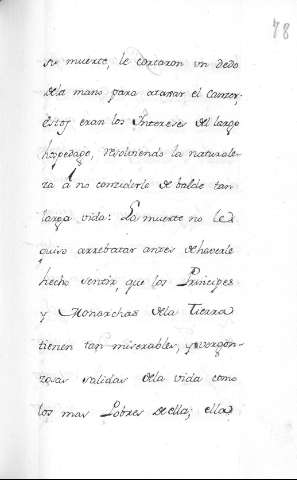 78
su muerte, le cortaron un dedo
dela mano para atajar el Canzer,
estos eran los Intereses del largo
hospedage, resolviendo la naturale-
za á no concederle de balde tan
larga vida: La muerte no le
quiso arrebatar antes de haverle
hecho sentir, que los Principes
y Monarchas dela Tierra
tienen tan miserables, y vergon-
zosas salidas dela vida como
los mas Pobres de ella; ella